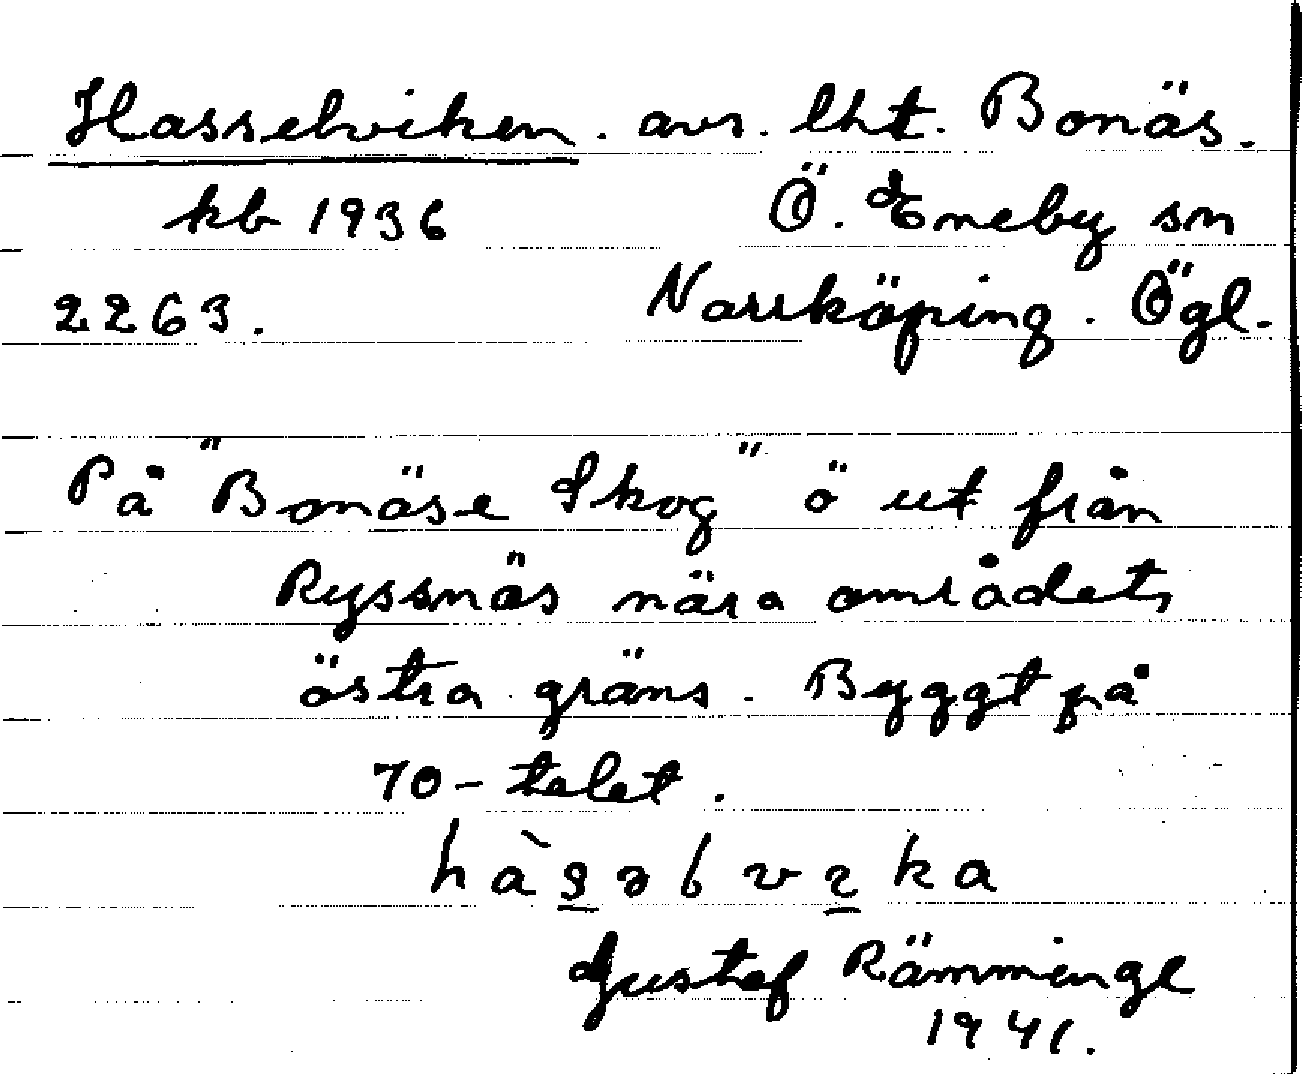 Hasselviken. avs. lht. Bonäs.
kb 1936 Ö. Eneby sn
2263. Norrköping. Ögl.
På "Bonäse Skog" ö ut från
Ryssnäs nära områdets
östra gräns. Byggt på
70-talet.
Gustaf Rämminge
1941.